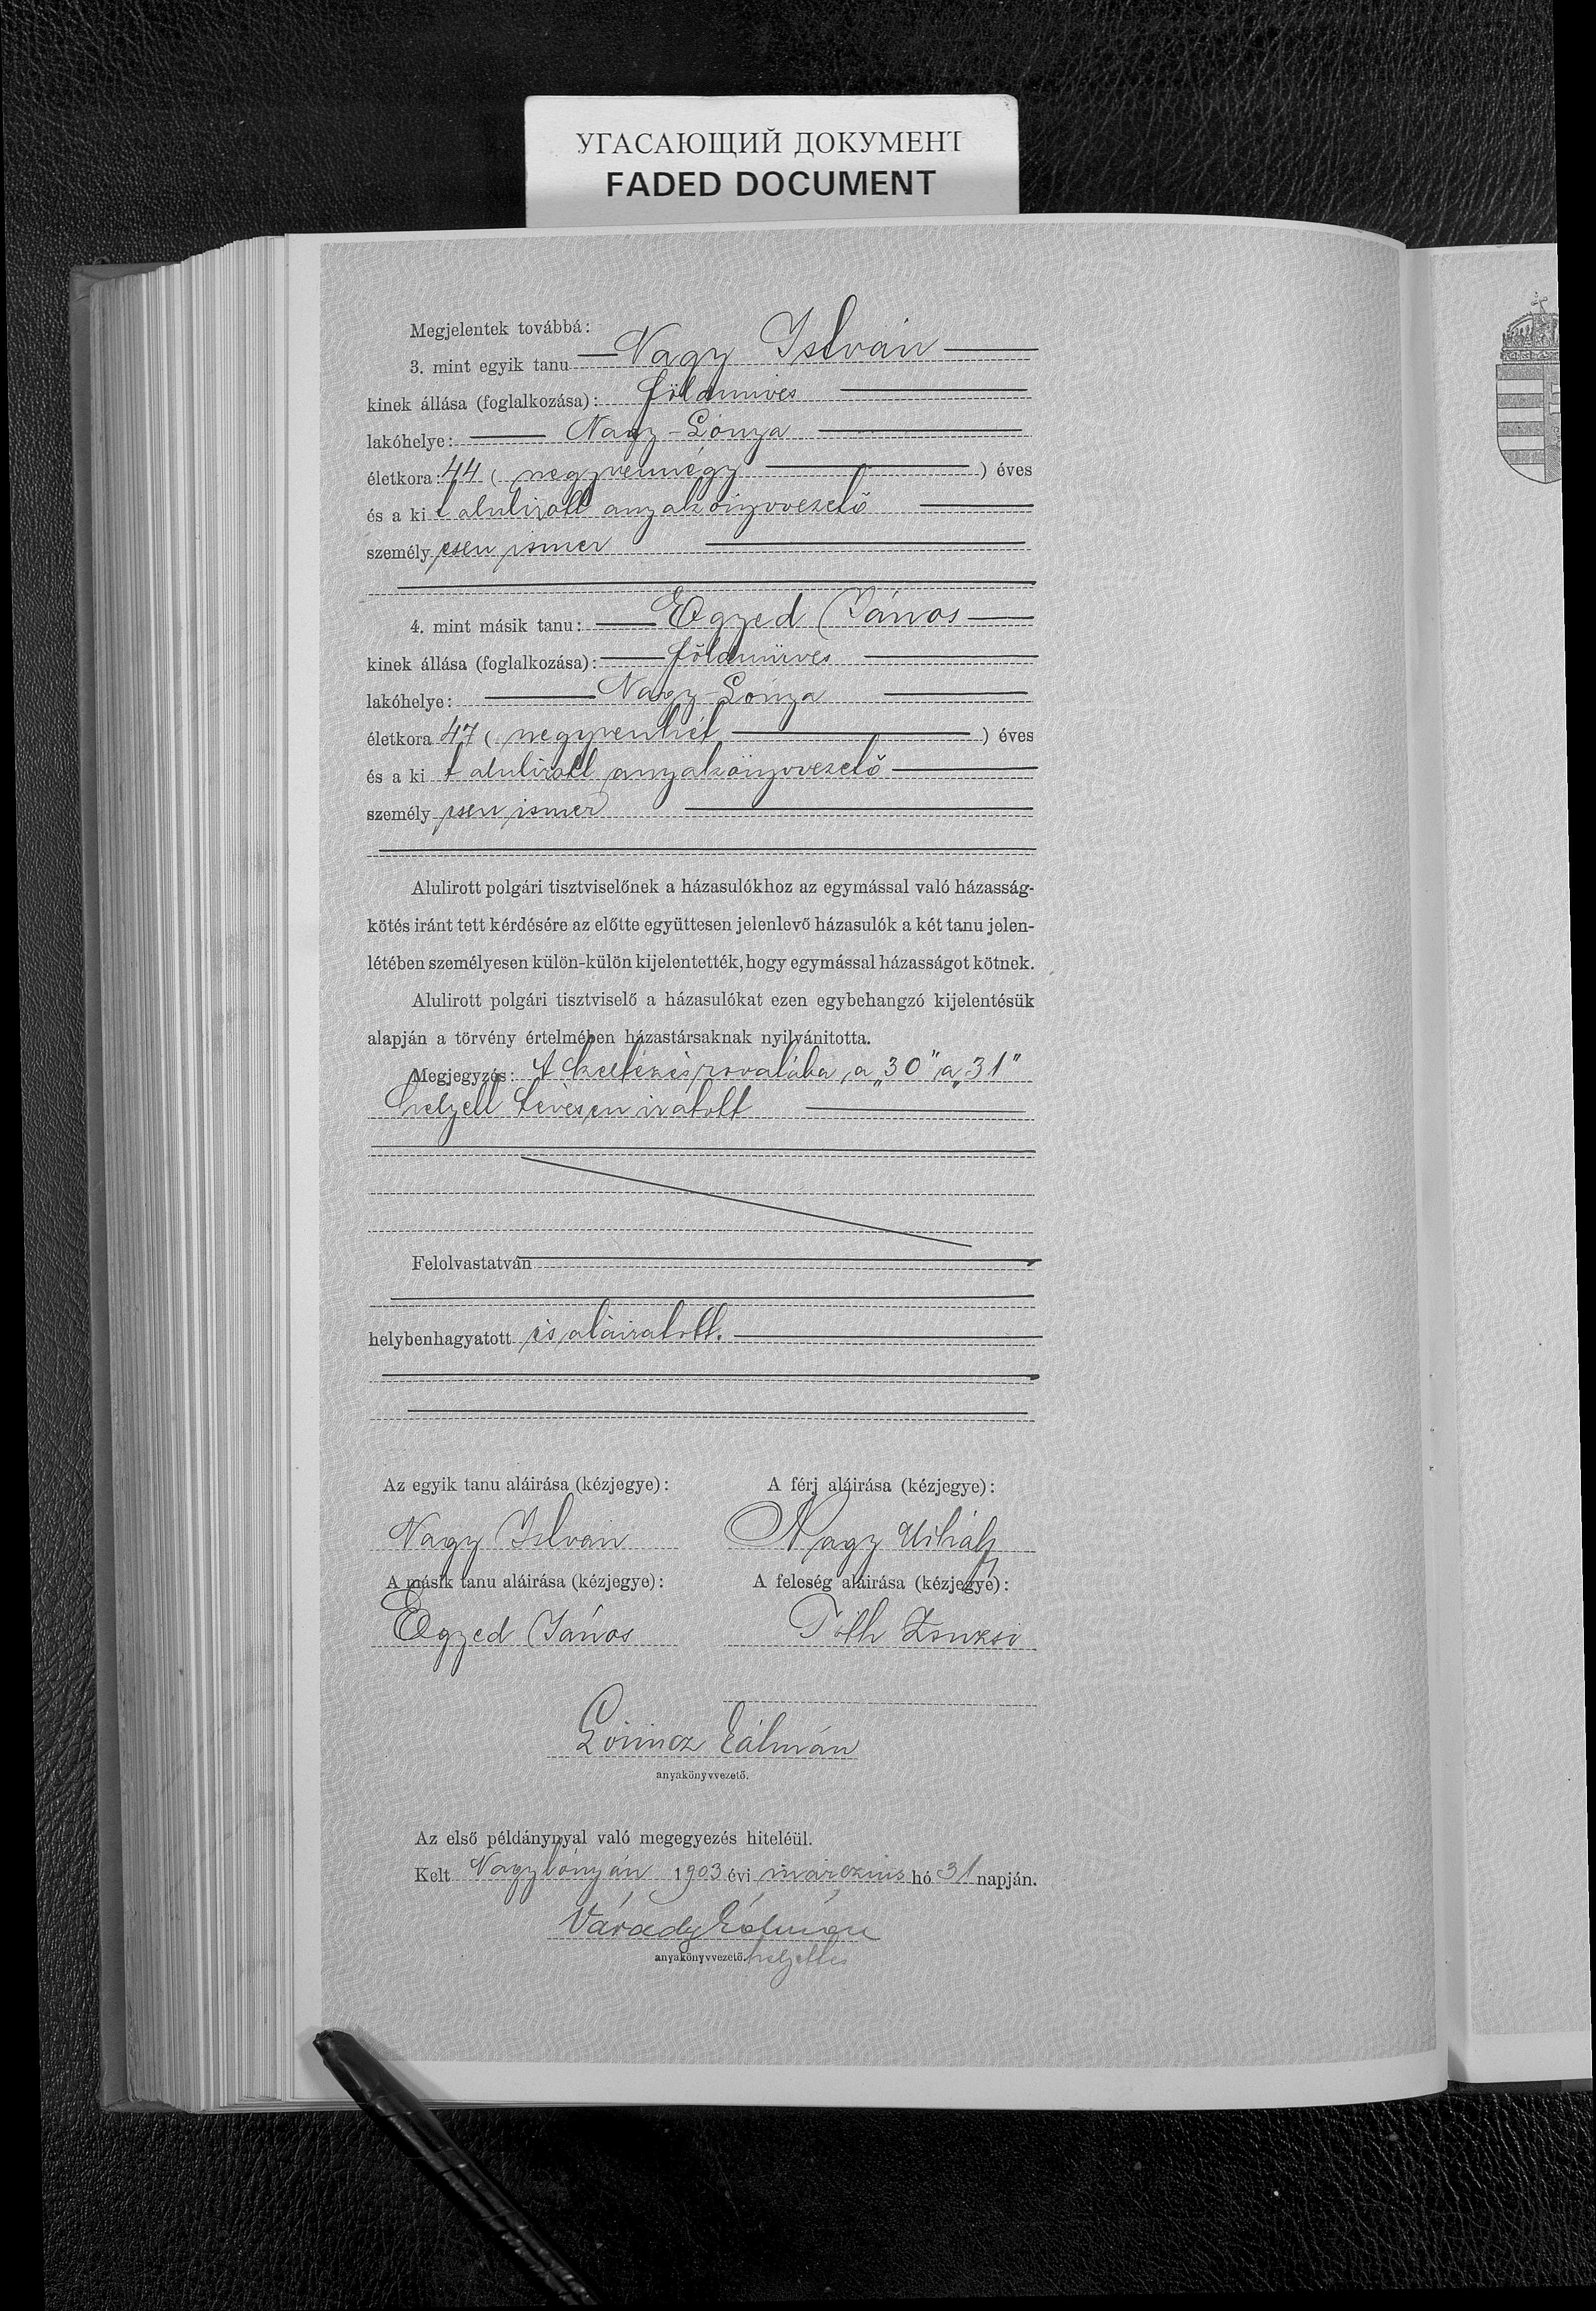 УГАСАЮЩИЙ ДОКУМЕНТ
FADED DOCUMENT
Megjelentek továbbá:
3. mint egyik tanu Nagy István
kinek állása (foglalkozása): földmives
lakóhelye: Nagy-Lónya
életkora: 44 ( negyvennégy ) éves
és a ki t alulirott anyakönyvvezető
személy esen ismer
4. mint másik tanu: Egyed János
kinek állása (foglalkozása): földmüves
lakóhelye: Nagy-Lónya
életkora 47 ( negyvenhét ) éves
és a ki t alulirott anyakönyvvezető
személy esen ismer
Alulirott polgári tisztviselőnek a házasulókhoz az egymással való házasság-
kötés iránt tett kérdésére az előtte együttesen jelenlevő házasulók a két tanu jelen-
létében személyesen külön-külön kijelentették, hogy egymással házasságot kötnek.
Alulirott polgári tisztviselő a házasulókat ezen egybehangzó kijelentésük
alapján a törvény értelmében házastársaknak nyilvánitotta.
Megjegyzés: A keltezés rovatába, a „30" a „31"
helyett tévesen iratott
Felolvastatván
helybenhagyatott és aláiratott.
Az egyik tanu aláirása (kézjegye): A férj aláirása (kézjegye):
Nagy István Nagy Mihály
A másik tanu aláirása (kézjegye): A feleség aláirása (kézjegye):
Egyed János Tóth Zsuzsi
Lőrincz Kálmán
anyakönyvvezető.
Az első példánynyal való megegyezés hiteléül.
Kelt Nagylónyán 1903 évi márczius hó 31 napján.
Várady Kálmán
anyakönyvvezető. helyettes